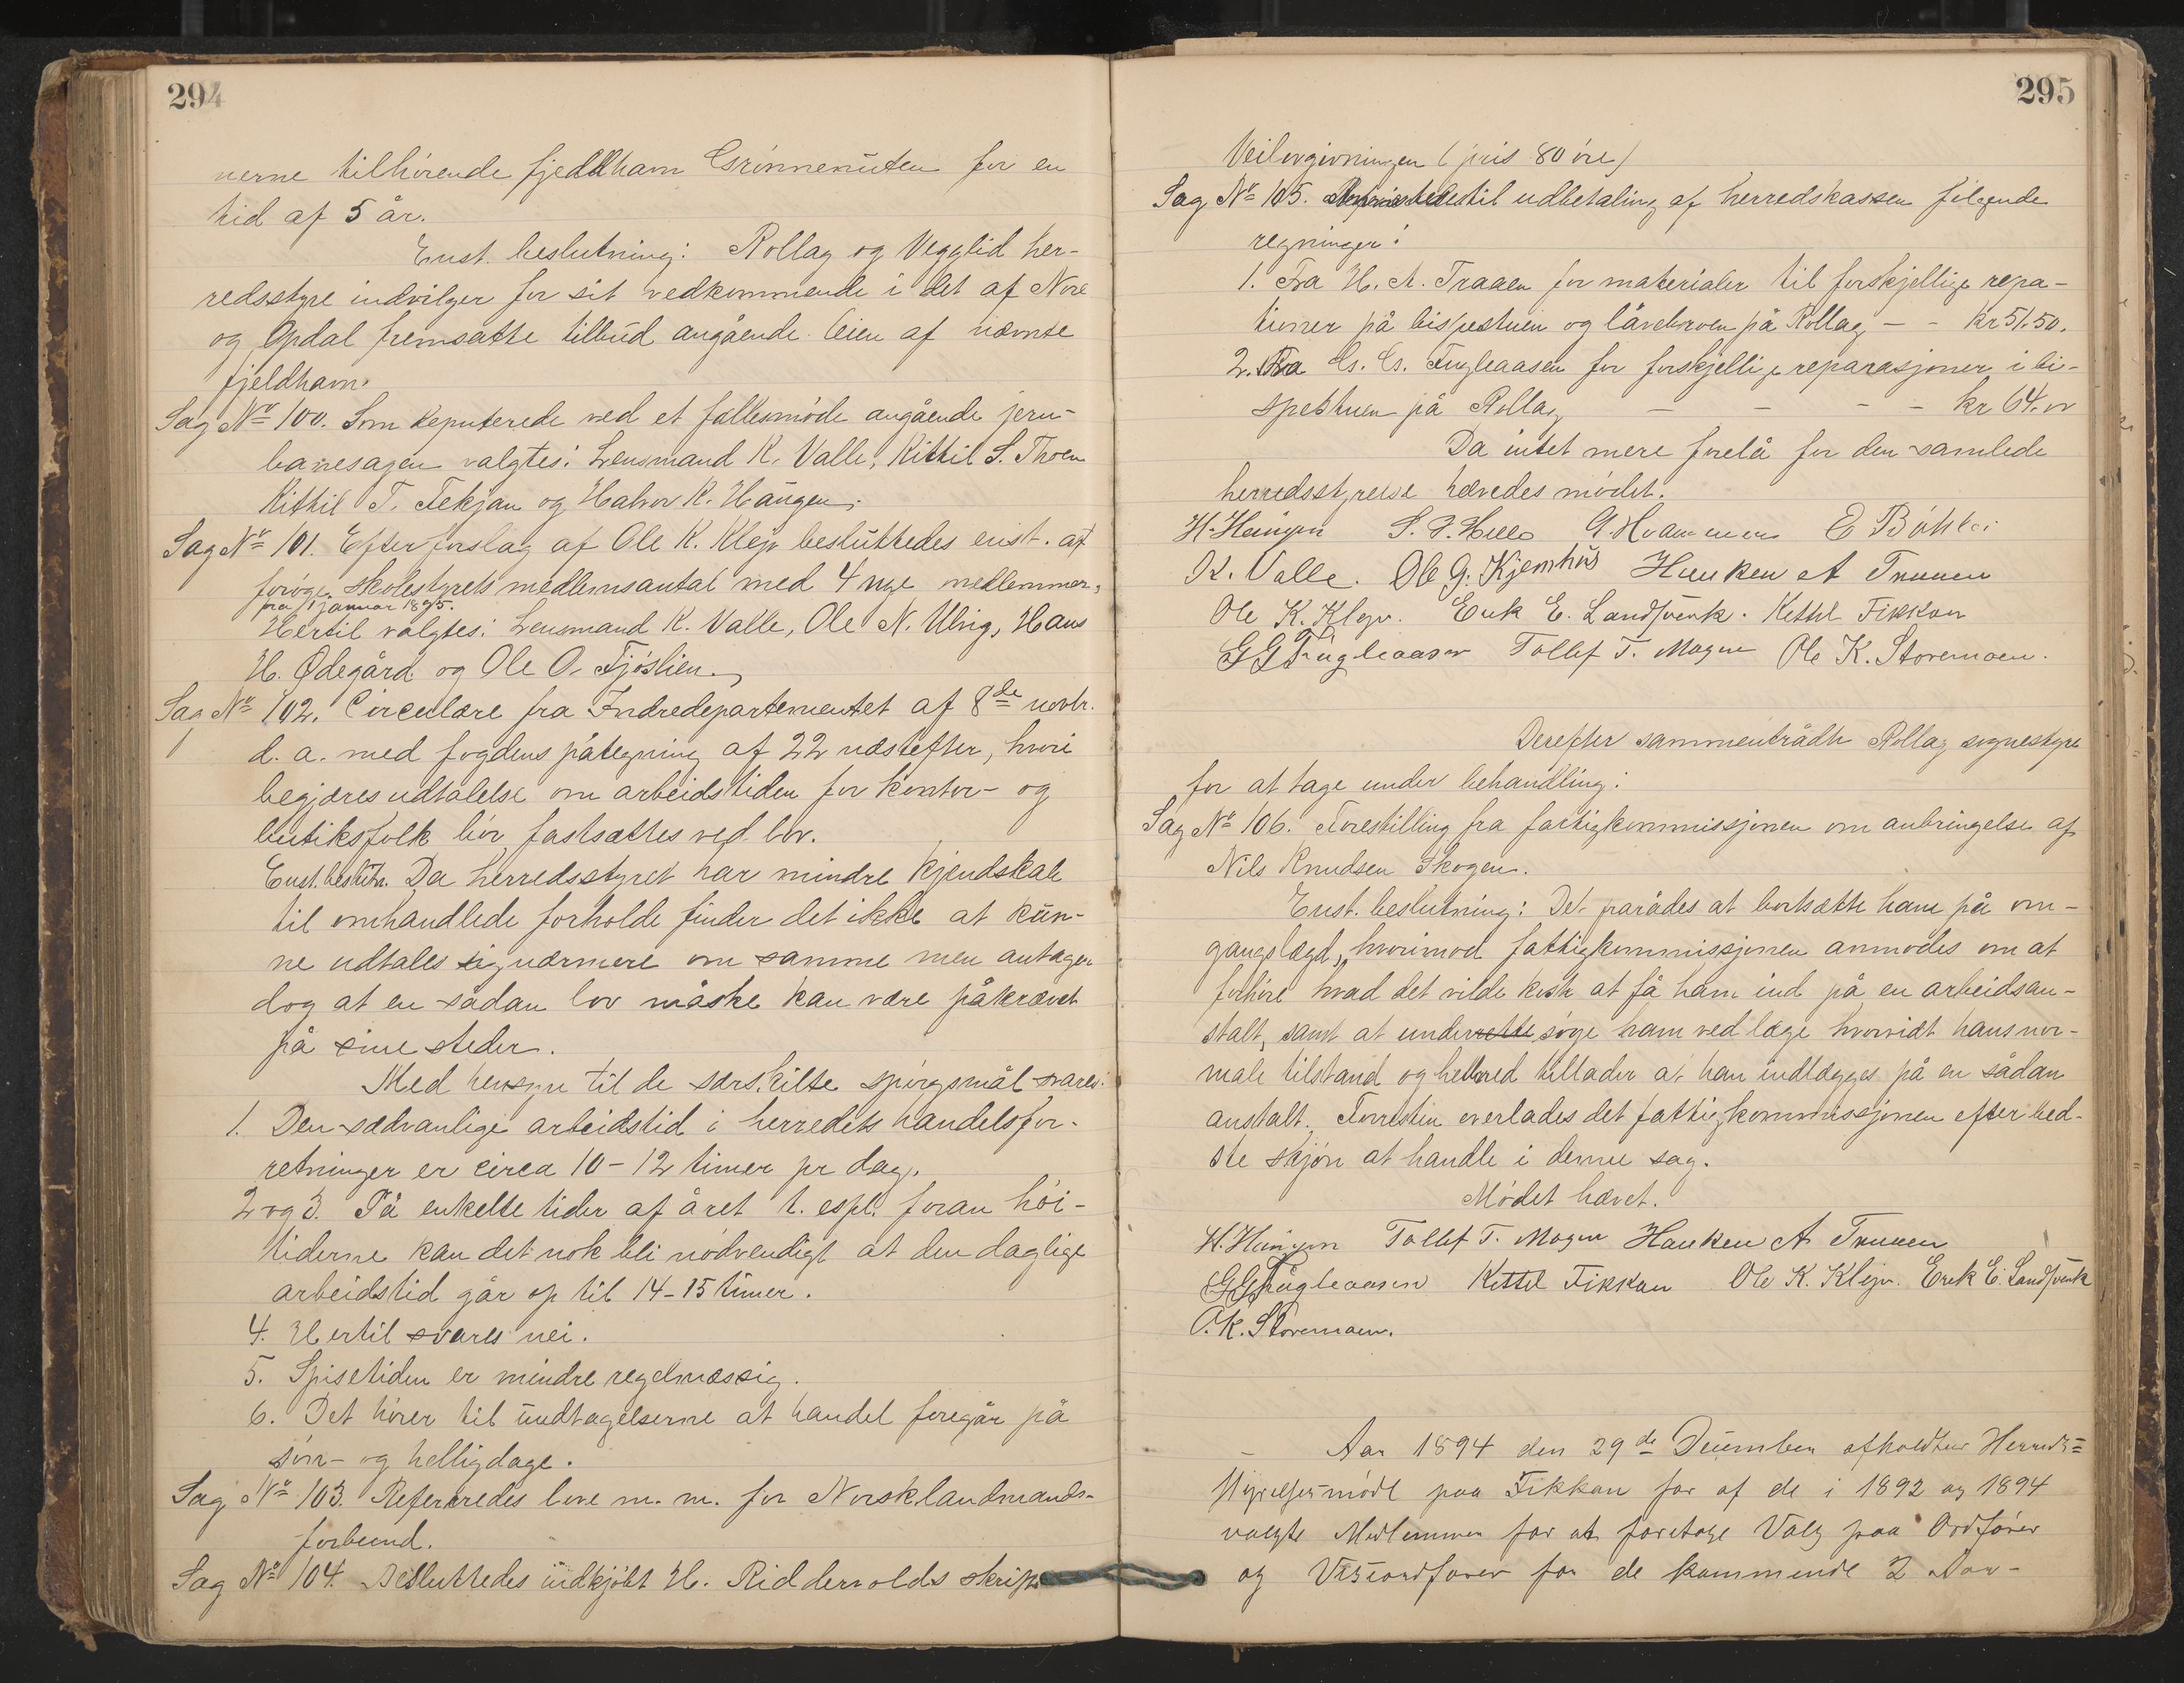 294
nerne tilhörende fjeldham Grönnenuten for en
tid af 5 år.
Enst. beslutning: Rollag og Vegglid her-
redsstyre indvilger for sit vedkommende i det af Nore
og Opdal fremsatte tilbud angående leien af nævnte
fjeldham.
Sag No 100. Som deputerede ved et fællesmöde angående jern-
banesagen valgtes: Lensmand K. Valle, Kittil S. Thoen
Kittil T. Tekjan og Halvor K. Haugen.
Sag No 101. Efter forslag af Ole K. Klejv besluttedes enst. at
foröge skolestyrets medlemsantal med 4 nye medlemmer,
fra 1 januar 1895.
Hertil valgtes: Lensmand K. Valle, Ole N. Ulvig, Hans
H. Ödegård og Ole O. Fjöslien.
Sag No 102. Circulære fra Indredepartementet af 8de novbr.
d. a. med fogdens påtegning af 22 næstefter, hvori
begjæres udtalelse om arbeidstiden for kontor- og
butiksfolk bör fastsættes ved lov.
Enst. beslutn. Da herredsstyret har mindre kjendskab
til omhandlede forholde finder det ikke at kun-
ne udtales sig nærmere om samme men antager
dog at en sådan lov måske kan være påkrævet
på sine steder.
Med hensyn til de særskilte spörgsmål svares:
1. Den sædvanlige arbeidstid i herredets handelsfor-
retninger er circa 10-12 timer pr dag.
2 og 3. På enkelte tider af året t. expl. foran höi-
tiderne kan det nok bli nödvendigt at den daglige
arbeidstid går op til 14-15 timer.
4. Hertil svares nei.
5. Spisetiden er mindre regelmæssig.
6. Det hörer til undtagelserne at handel foregår på
sön- og helligdage.
Sag No 103. Refereredes love m. m. for Norsk landmands-
forbund.
Sag No 104. Besluttedes indkjöbt H. Riddervolds skrift
295
Veilovgivningen (pris 80 öre)
Sag No 105. til udbetaling af herredskassen fölgende
regninger:
1. Fra H. A. Traaen for materialer til forskjellige repa-
tioner på bispestuen og låvebroen på Rollag - - kr 51.50.
2. Fra G. G. Fugleaasen for forskjellige reparasjoner i bi-
spestuen på Rollag - - - - kr 64.00
Da intet mere forelå for den samlede
herredsstyrelse hævedes mödet.
H. Haugen S. P. Helle G. Hvammen E Böhler
K. Valle. Ole G. Kjemhus Haaken A Traaen
Ole K. Klejv. Erik E. Landsverk. Kettil Fikkan
G G Fugleaasen Tollef T. Mogen Ole K. Storemoen.
Derefter sammentrådte Rollag sognestyre
for at tage under behandling:
Sag No 106. Forestilling fra fattigkommissjonen om anbringelse af
Nils Knudsen Skogen.
Enst. beslutning: Det frarådes at bortsætte ham på om-
gangslægd, hvorimod fattigkommissjonen anmodes om at
forhöre hvad det vilde koste at få ham ind på en arbeidsan-
stalt, samt at underrette söge ham ved læge hvorvidt hans nor-
male tilstand og helbred tillader at han indlægges på en sådan
anstalt. Forresten overlades det fattigkommissjonen efter bed-
ste skjön at handle i denne sag.
Mödet hævet.
H. Haugen Tollef T. Mogen Haaken A Traaen
G G Fugleaasen Kettil Fikkan Ole K. Klejv. Erik E. Landsverk
O. K. Storemoen.
Aar 1894 den 29de December afholdtes Herreds=
styrelsesmöde paa Fikkan for af de i 1892 og 1894
valgte Medlemmer for at foretage Valg paa Ordförer
og Viseordförer for de kommende 2 Aar-